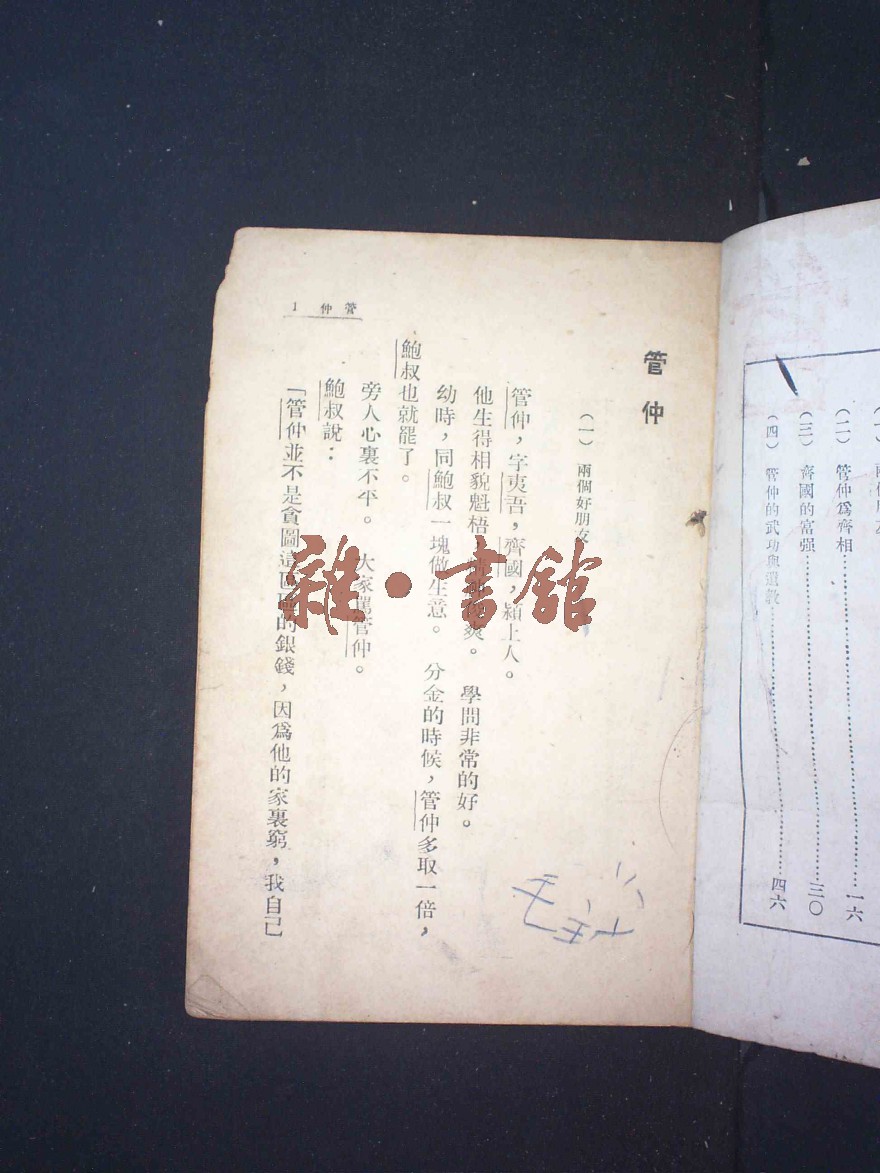 （二） 管仲爲齊相……一六
（三） 齊國的富强……三〇
（四） 管仲的武功與遺敎……四六
管仲
（一） 兩個好朋友
管仲，字夷吾，齊國，潁上人。
他生得相貌魁梧，爽。 學問非常的好。
幼時，同鮑叔一塊做生意。 分金的時候，管仲多取一倍，
鮑叔也就罷了。
旁人心裏不平。 大家罵管仲。
鮑叔說：
「管仲並不是貪圖這區區的銀錢，因爲他的家裏窮，我自己
管仲 1
雜·書館